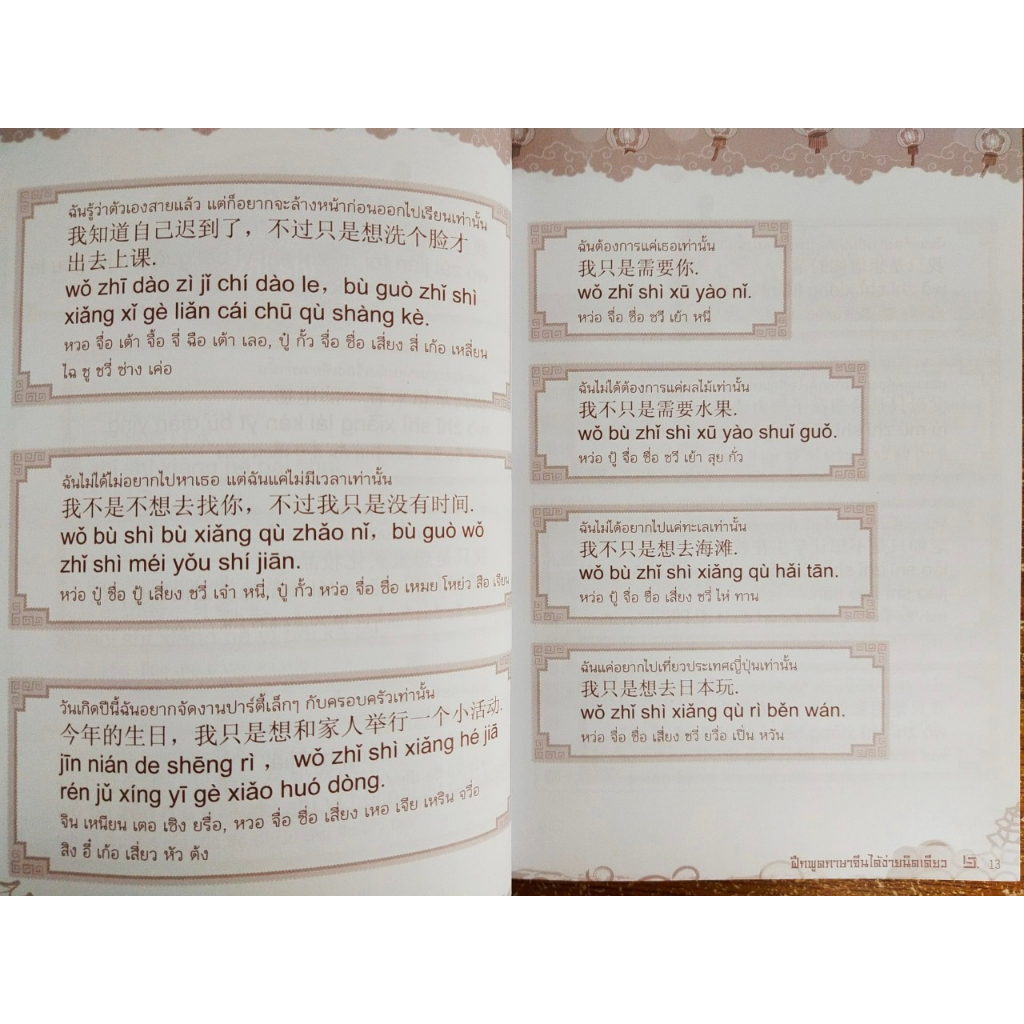 ฉันรู้ว่าตัวเองสายแล้ว แต่ก็อยากจะล้างหน้าก่อนออกไปเรียนเท่านั้น
我知道自己迟到了，不过只是想洗个脸才
出去上课.
wǒ zhī dào zì jǐ chí dào le，bù guò zhǐ shì
xiǎng xǐ gè liǎn cái chū qù shàng kè.
หวอ จื่อ เต้า จื้อ จี่ ฉือ เต้า เลอ, ปู้ กั้ว จื่อ ซื่อ เสี่ยง สี่ เก้อ เหลี่ยน
ไฉ ชู ชวี่ ซ่าง เค่อ
ฉันไม่ได้ไม่อยากไปหาเธอ แต่ฉันแค่ไม่มีเวลาเท่านั้น
我不是不想去找你，不过我只是没有时间.
wǒ bù shì bù xiǎng qù zhǎo nǐ，bù guò wǒ
zhǐ shì méi yǒu shí jiān.
หว่อ ปู๋ ซื่อ ปู้ เสี่ยง ชวี่ เจ๋า หนี่, ปู๋ กั้ว หว่อ จื่อ ซื่อ เหมย โหย่ว สือ เจียน
วันเกิดปีนี้ฉันอยากจัดงานปาร์ตี้เล็กๆ กับครอบครัวเท่านั้น
今年的生日，我只是想和家人举行一个小活动.
jīn nián de shēng rì ， wǒ zhǐ shì xiǎng hé jiā
rén jǔ xíng yī gè xiǎo huó dòng.
จิน เหนียน เตอ เซิง ยรื่อ, หวอ จื่อ ซื่อ เสี่ยง เหอ เจีย เหริน จวี่อ
สิง อี๋ เก้อ เสี่ยว หัว ต้ง
ฉันต้องการแค่เธอเท่านั้น
我只是需要你.
wǒ zhǐ shì xū yào nǐ.
หว่อ จื่อ ซื่อ ซวี เย้า หนี่
ฉันไม่ได้ต้องการแค่ผลไม้เท่านั้น
我不只是需要水果.
wǒ bù zhǐ shì xū yào shuǐ guǒ.
หว่อ ปู้ จื่อ ซื่อ ซวี เย้า สุย กั่ว
ฉันไม่ได้อยากไปแค่ทะเลเท่านั้น
我不只是想去海滩.
wǒ bù zhǐ shì xiǎng qù hǎi tān.
หว่อ ปู้ จื่อ ซื่อ เสี่ยง ชวี่ ไห่ ทาน
ฉันแค่อยากไปเที่ยวประเทศญี่ปุ่นเท่านั้น
我只是想去日本玩.
wǒ zhǐ shì xiǎng qù rì běn wán.
หว่อ จื่อ ซื่อ เสี่ยง ชวี่ ยวื่อ เปิ่น หวัน
ฝึกพูดภาษาจีนได้ง่ายนิดเดียว 13